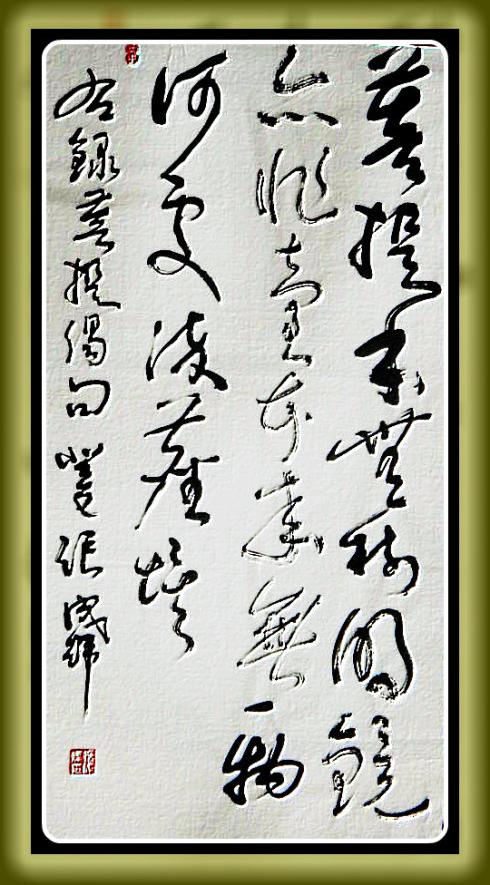 菩提本無樹明鏡
亦非臺本來無一物
何處染塵埃
右錄菩提偈句 張